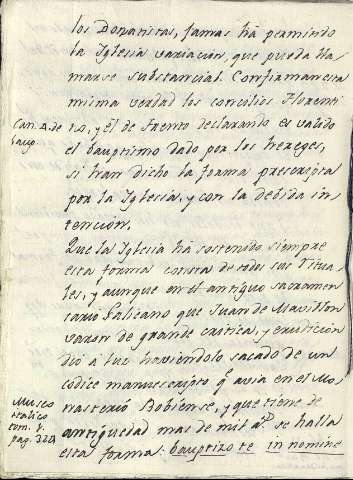 los Donatistas, jamas há permitido
la Iglesia variacion, que pueda lla
marse substancial. Confirman esta
misma verdad los concilios Florenti
Can. 4. de
baup.
no, y el de trento declarando es valido
el bauptismo dado por los hereges,
si han dicho la forma prescripta
por la Iglesia, y con la debida in
tencion.
Que la Iglesia há sostenido siempre
esta forma consta de todos sus Ritua
les, y aunque en el antiguo sacramen
tario Galicano que Juan de Mavillon
varon de grande critica, y erudicion
dió a luz haviendolo sacado de un
codice manuscripto q.e avia en el Mo
Museo
italico
tom. 1.
pag. 324
nasterio Bobiense, y que tiene de
antiguedad mas de mil a.s se halla
esta forma: bauptizo te in nomine